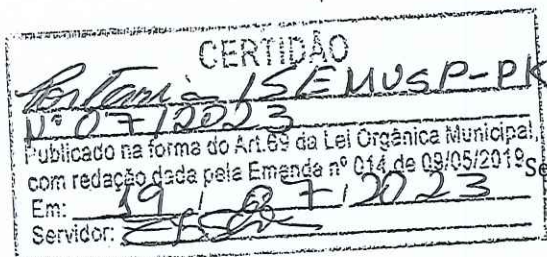 CERTIDÃO
Portaria /SEMUSP-PK
Nº 07/2023
Publicado na forma do Art.69 da Lei Orgânica Municipal,
com redação dada pela Emenda nº 014 de 09/05/2019 Se
Em: 19 / 07 / 2023
Servidor: